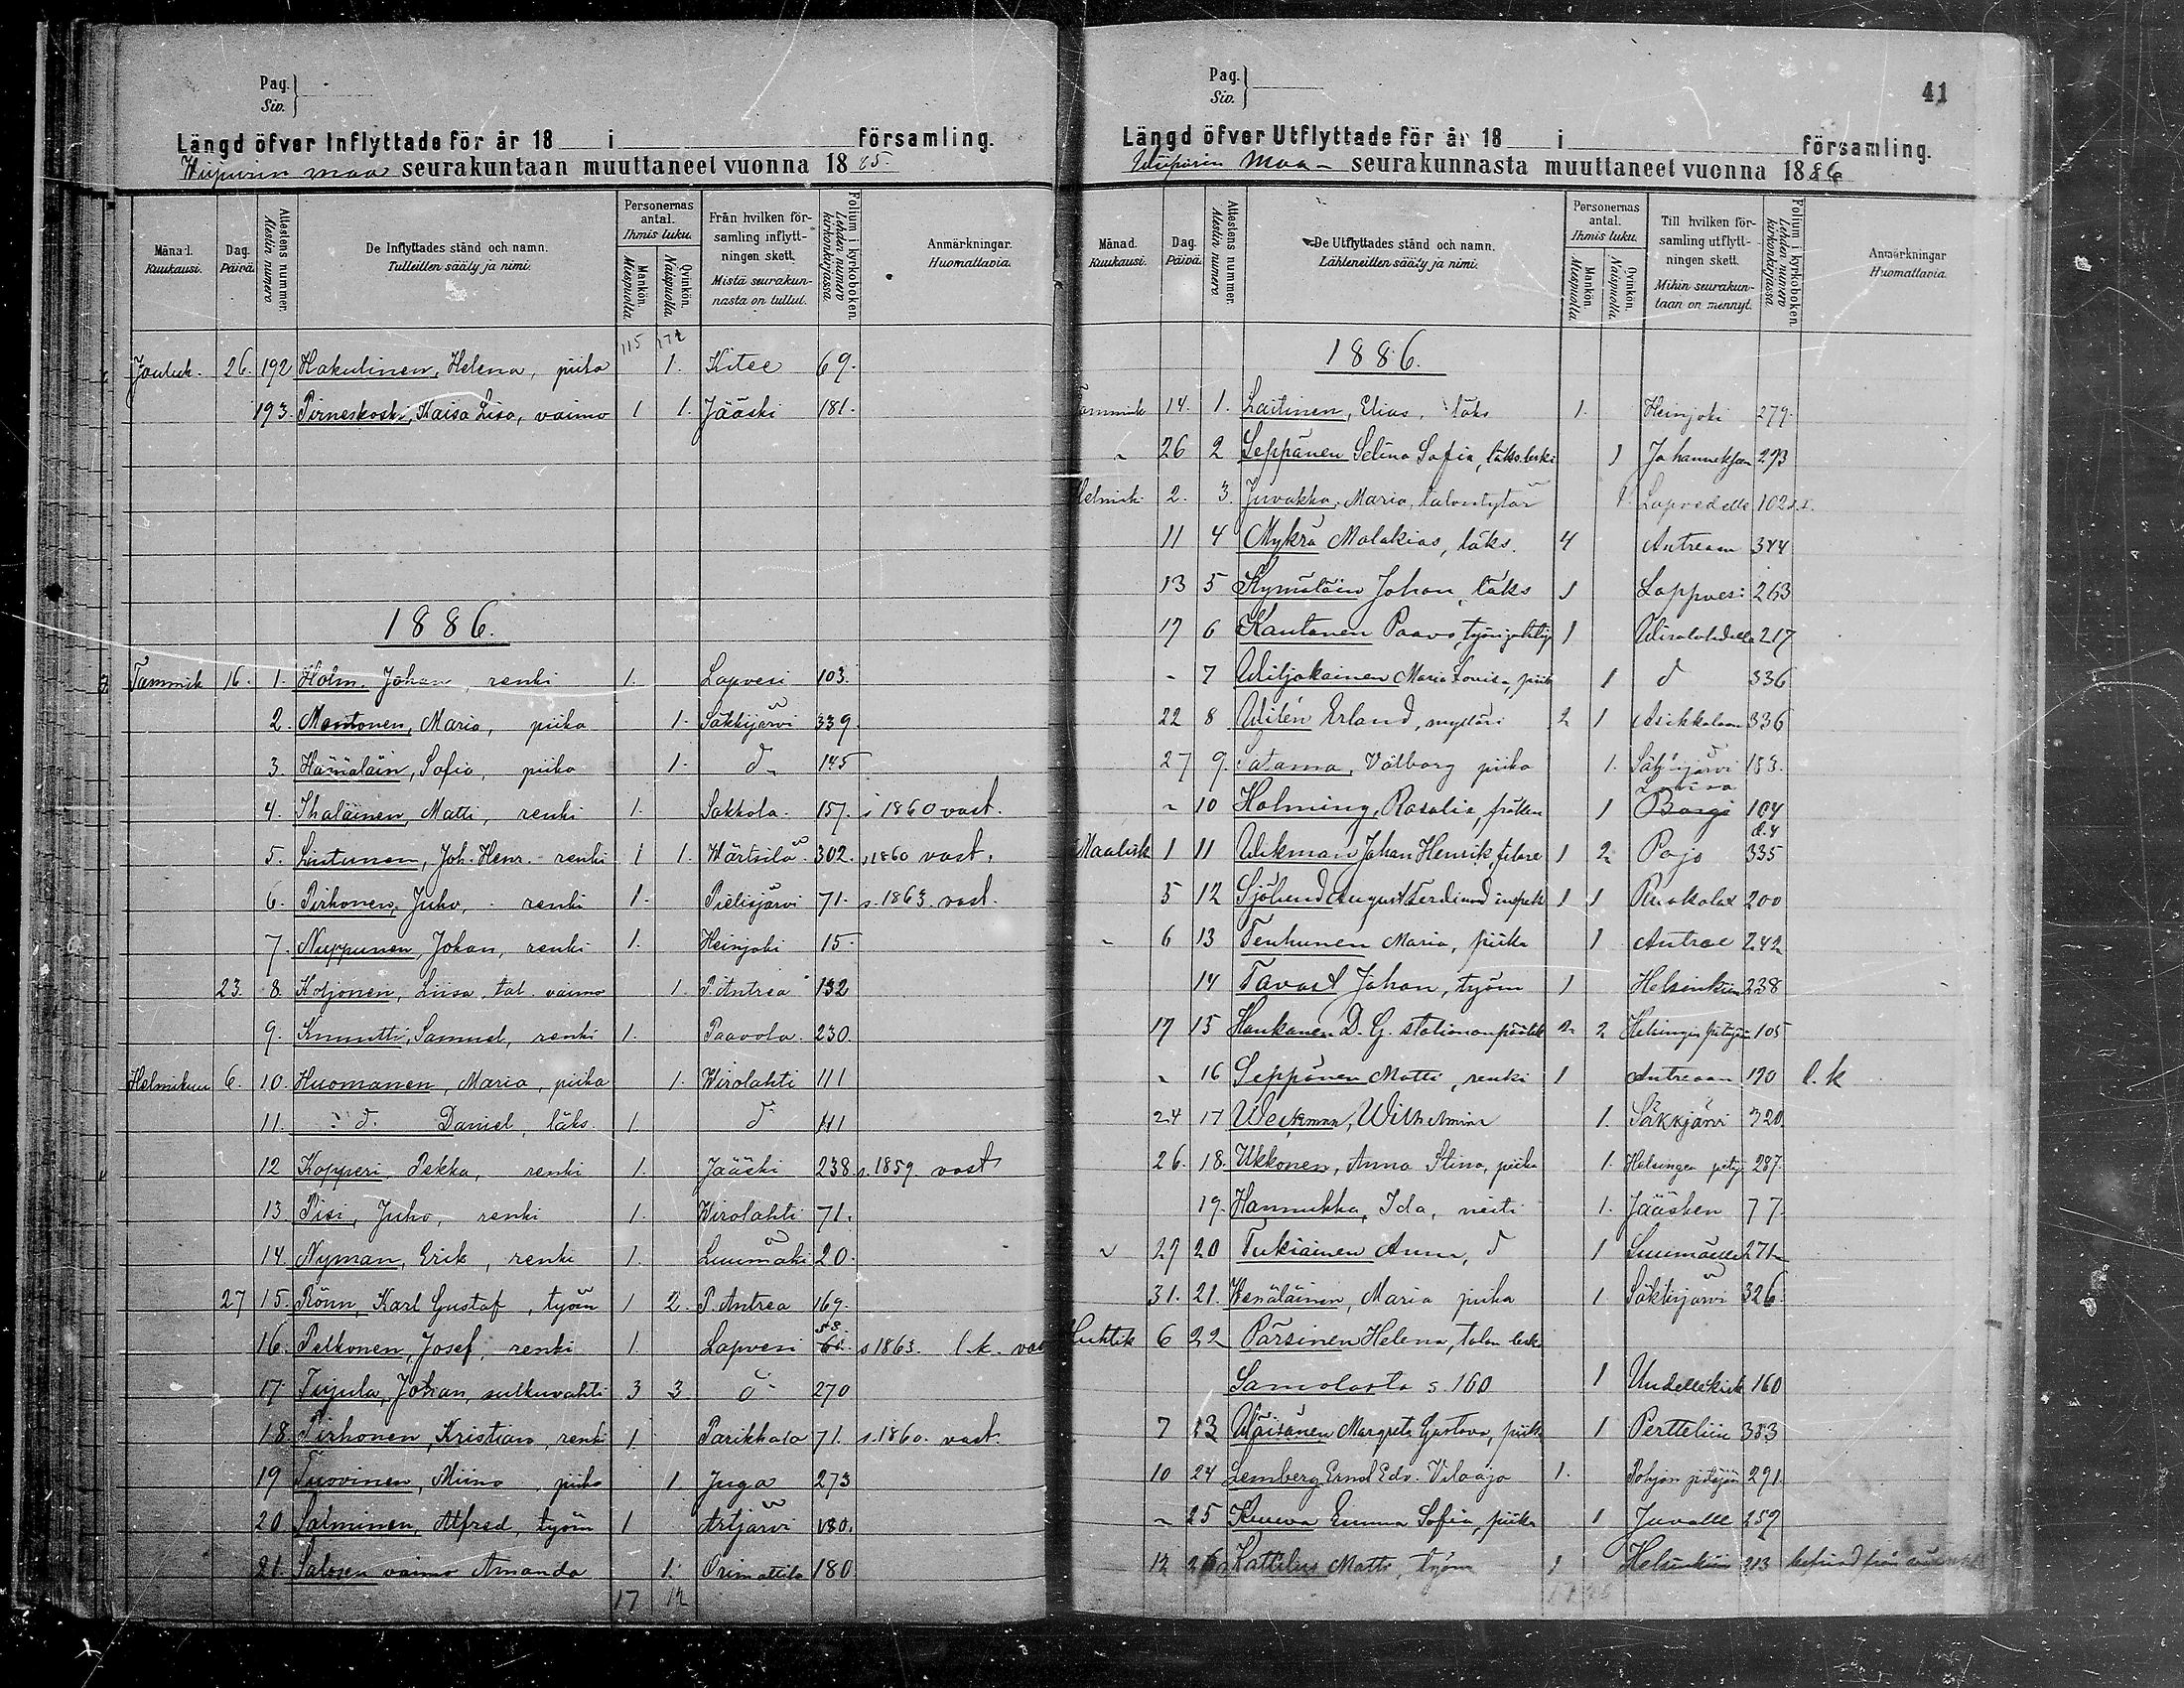 Pag.
Siv.
Längd öfver Inflyttade för år 18 i församling.
Wiipurin maa seurakuntaan muuttaneet vuonna 1885
Månad. Kuukausi. Dag. Päivä. Attestens nummer. Mestin numero De Inflyttades stånd och namn. Tulleitten sääty ja nimi. Personernas antal. Ihmis luku. Mankön. Miespuolia. Qvinkön. Naispuolia. Från hvilken församling inflyttningen skett. Mistä seurakunnasta on tullut. Folium i kyrkoboken. Lehden numero kirkonkirjassa. Anmärkningar. Huomattavia.
115 172
Jouluk. 26. 192 Hakulinen, Helena, piika 1. Kitee 69.
193. Pirneskoski, Kaisa Liisa, vaimo 1 1. Jääski 181.
1886.
Tammik 16. 1. Holm. Johan, renki 1. Lapvesi 103.
2. Montonen, Maria, piika 1. Säkkijärvi 339.
3. Hämäläin, Sofia, piika 1. d 145
4. Ihaläinen, Matti, renki 1. Sakkola 157. s 1860 vast.
5. Lintunen, Joh. Henr. renki 1 1. Wärtsilä 302. s 1860 vast.
6. Pirhonen, Juho, renki 1. Pielisjärvi 71. s. 1863. vast.
7. Nuppunen, Johan, renki 1. Heinjoki 15.
23. 8. Koljonen, Liisa, tal. vaimo 1. P. Antrea 132
9. Knuutti, Samuel, renki 1. Paavola 230.
Helmikuu 6. 10. Huomanen, Maria, piika 1. Wirolahti 111
11. d. Daniel, läks. 1. d 111
12 Kopperi, Pekka, renki 1. Jääski 238. s. 1859. vast
13. Pisi, Juho, renki 1. Wirolahti 71.
14. Nyman, Erik, renki 1. Luumäki 20.
27 15. Rönn, Karl Gustaf, työm 1 2. P. Antrea 169.
16. Pelkonen, Josef, renki 1. Lapvesi 58. s 1863. l.k.
17. Tujula, Johan, sulkuvahti 3 3. d 270
18. Pirhonen, Kristian, renki 1. Parikkala 71. s. 1860. vast.
19 Tuovinen, Miina, piika 1. Juga 273
20 Salminen, Alfred, työm 1 Artjärvi 180.
21. Salosen vaimo Amanda 1. Orimattila 180
17 12
Pag.
Siv.
41
Längd öfver Utflyttade för år 18 i församling.
Wiipurin Maa- seurakunnasta muuttaneet vuonna 1886
Månad. Kuukausi. Dag. Päivä. Attestens nummer. Mestin numero De Utflyttades stånd och namn. Lähteneitten sääty ja nimi. Personernas antal. Ihmis luku. Mankön. Miespuolia. Qvinkön. Naispuolia. Till hvilken församling utflyttningen skett. Mihin seurakuntaan on mennyt. Folium i kyrkoboken. Lehden numero kirkonkirjassa. Anmärkningar Huomattavia.
1886.
Tammik 14. 1. Laitinen, Elias, läks 1. Heinjoki 279.
26 2 Leppänen Selina Sofia, läks. leski 1 273
Helmik 2. 3. Juvakka, Maria, talontytär 1. Lapvedelle 102
11 4 Mykrä Malakias, läks. 4 Antrean 344
13 5 Kymäläin Johan, läks 1 Lappvesi 263
17 6 Kautanen Paavo, 1 Wirolahdelle 217
7 Wiljakainen Maria Lovisa, piika 1 d 336
22 8 Wilén Erland, mylläri 2 1 Asikkalaan 336
27 9. Satama, Valborg piika 1. Säkkijärvi 183.
10 Holming, Rosalie, fröken 1 Lovisa Borgå 104
Maalisk 1 11 Wikman Johan Henrik, 1 2 Pojo 335
5 12 August Ferdinand 1 1 Ruokolax 200
6 13 Tenhunen Maria, piika 1 Antrae 242
14 Tavast Johan, työm 1 Helsinkiin 238
17 15 Haukanen D. G. 2 2 Helsingin pitäjän 105
16 Seppönen Matti, renki 1 Antreaan 190 l.k
24 17 Weckman, Wilhelmina 1. Säkkjärvi 320.
26. 18. Ukkonen, Anna Stina, piika 1. Helsingen pitäj 287.
19. Hannukka, Ida, neiti 1. Jääsken 77.
29 20 Tukiainen Anna, d 1 271
31. 21. Wenäläinen, Maria piika 1 Säkkijärvi 326.
Huhtik 6 22 Pärsinen Helena, talon leski
Samolasta s. 160 1 160
7 23 Wäisänen Margreta Gustava, piika 1 Pertteliin 383
10 24 Lemberg Ernst Edv. 1. Pohjan pitäjän 291.
25 Kuuva Emma Sofia, piika 1 Juvalle 259
12 26 Kattilus Matts, työm 1 Helsinkiin 213